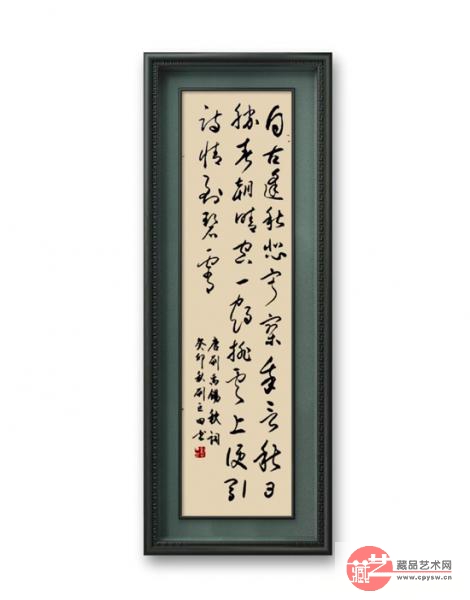 自古逢秋悲寂寥我言秋日
胜春朝晴空一鹤排云上便引
诗情到碧霄
唐刘禹锡秋词
癸卯秋刘立田书
藏艺
藏品艺术网
www.cpysw.cn